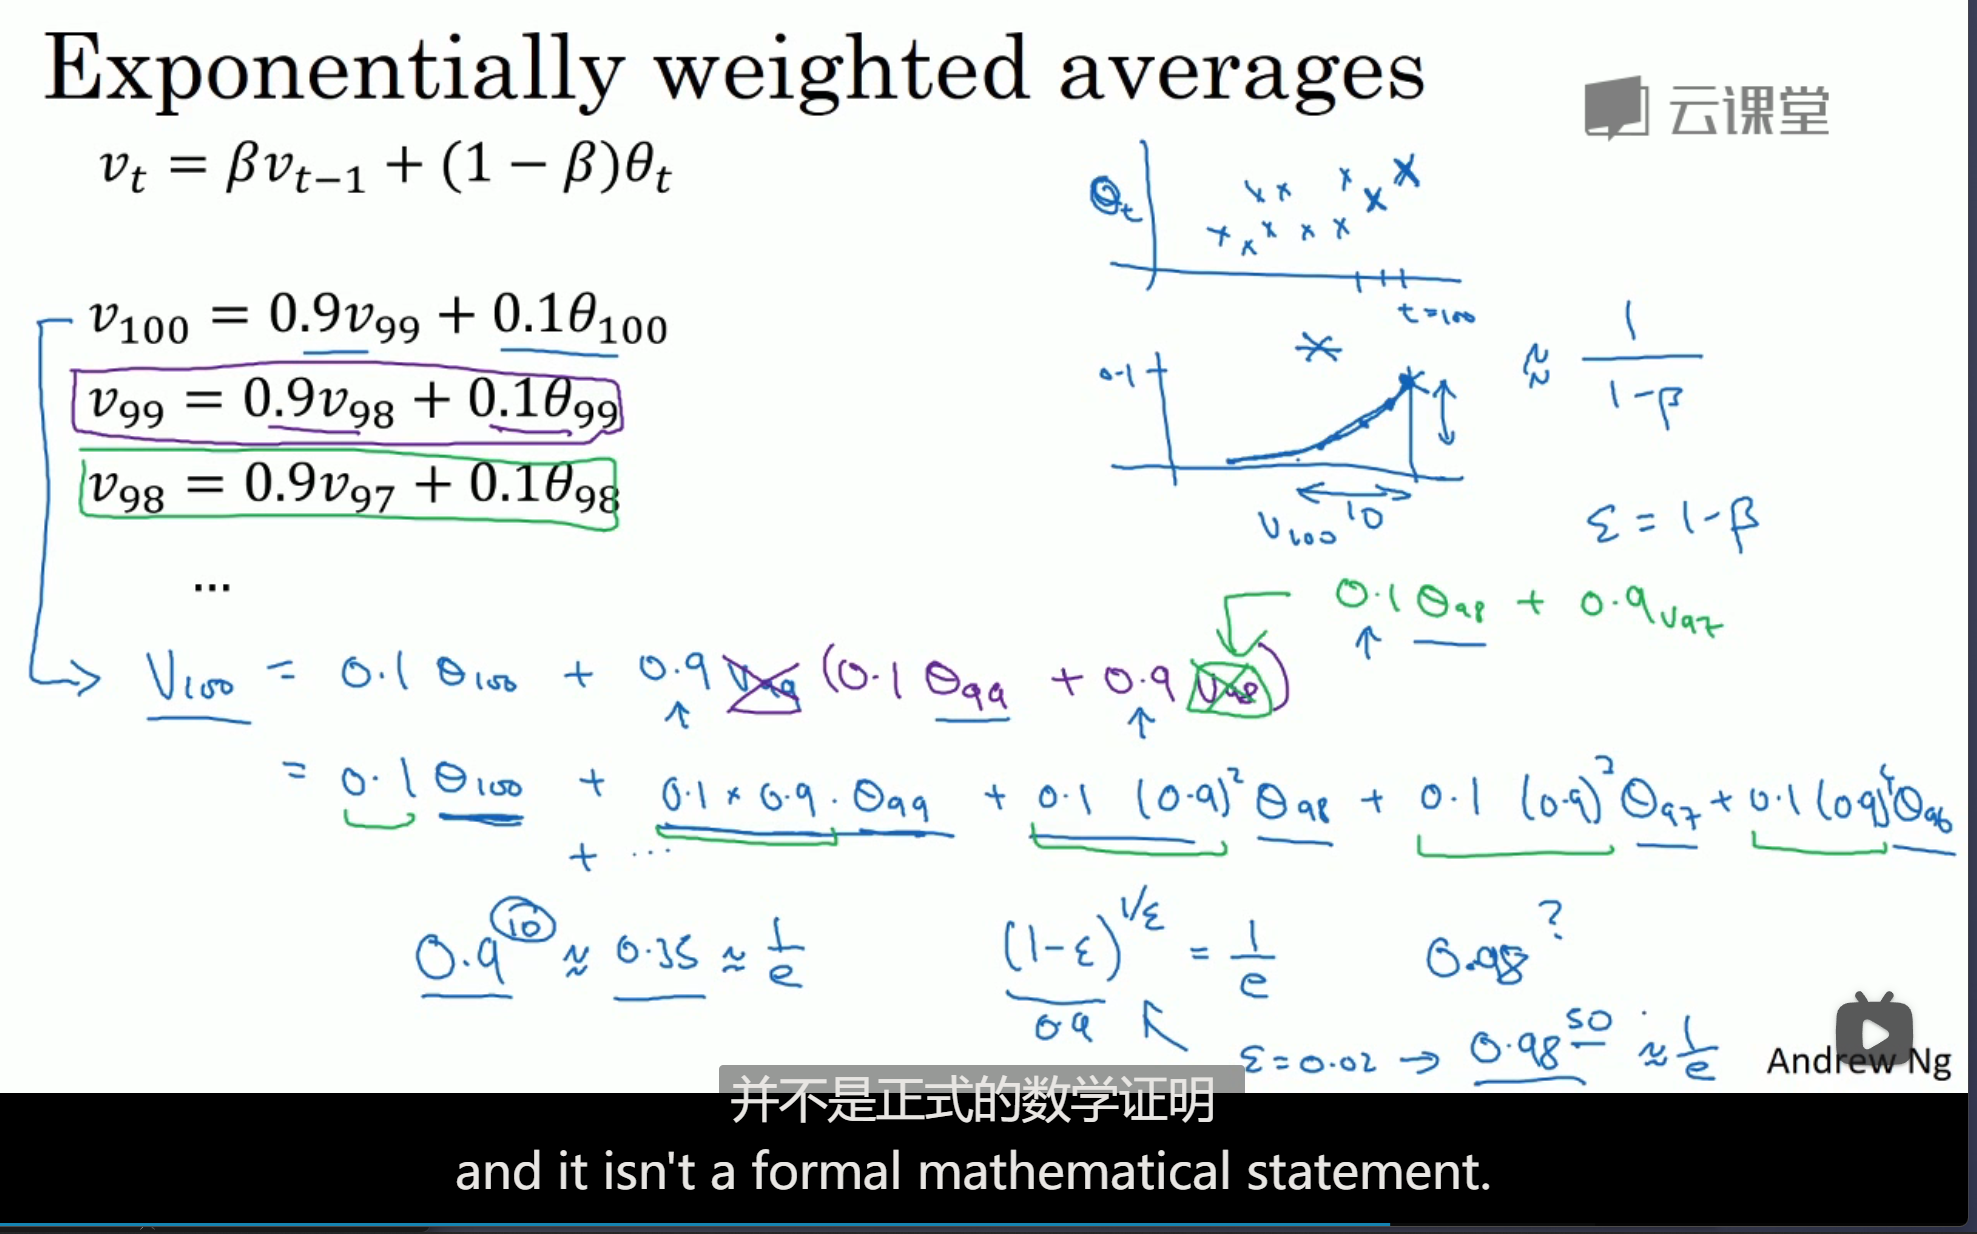 Exponentially weighted averages
云课堂
v_t = βv_{t−1} + (1 − β)θ_t
θ_t
t=100
v_100 = 0.9v_99 + 0.1θ_100
v_99 = 0.9v_98 + 0.1θ_99
v_98 = 0.9v_97 + 0.1θ_98
...
0.1
10
V_100
≈ 1/(1-β)
ε = 1-β
0.1 θ_98 + 0.9 V_97
V_100 = 0.1 θ_100 + 0.9 V_99 (0.1 θ_99 + 0.9 V_98)
= 0.1 θ_100 + 0.1 × 0.9 · θ_99 + 0.1 (0.9)^2 θ_98 + 0.1 (0.9)^3 θ_97 + 0.1 (0.9)^4 θ_96
+ ...
0.9^10 ≈ 0.35 ≈ 1/e
(1-ε)^{1/ε} = 1/e
0.9
0.98^?
ε = 0.02 → 0.98^50 ≈ 1/e
Andrew Ng
并不是正式的数学证明
and it isn't a formal mathematical statement.